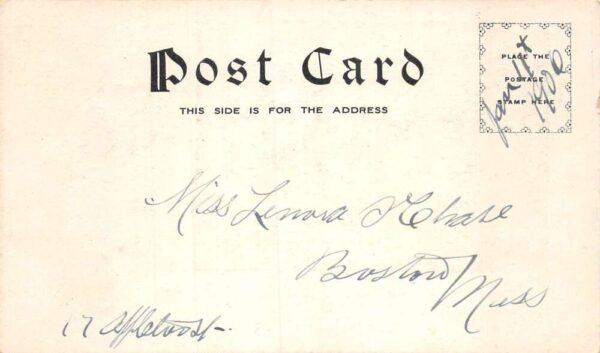 Post Card
THIS SIDE IS FOR THE ADDRESS
PLACE THE
POSTAGE
STAMP HERE
Jan 1st
1906
Miss Lenora H Chase
Boston Mass
17 Appleton St-